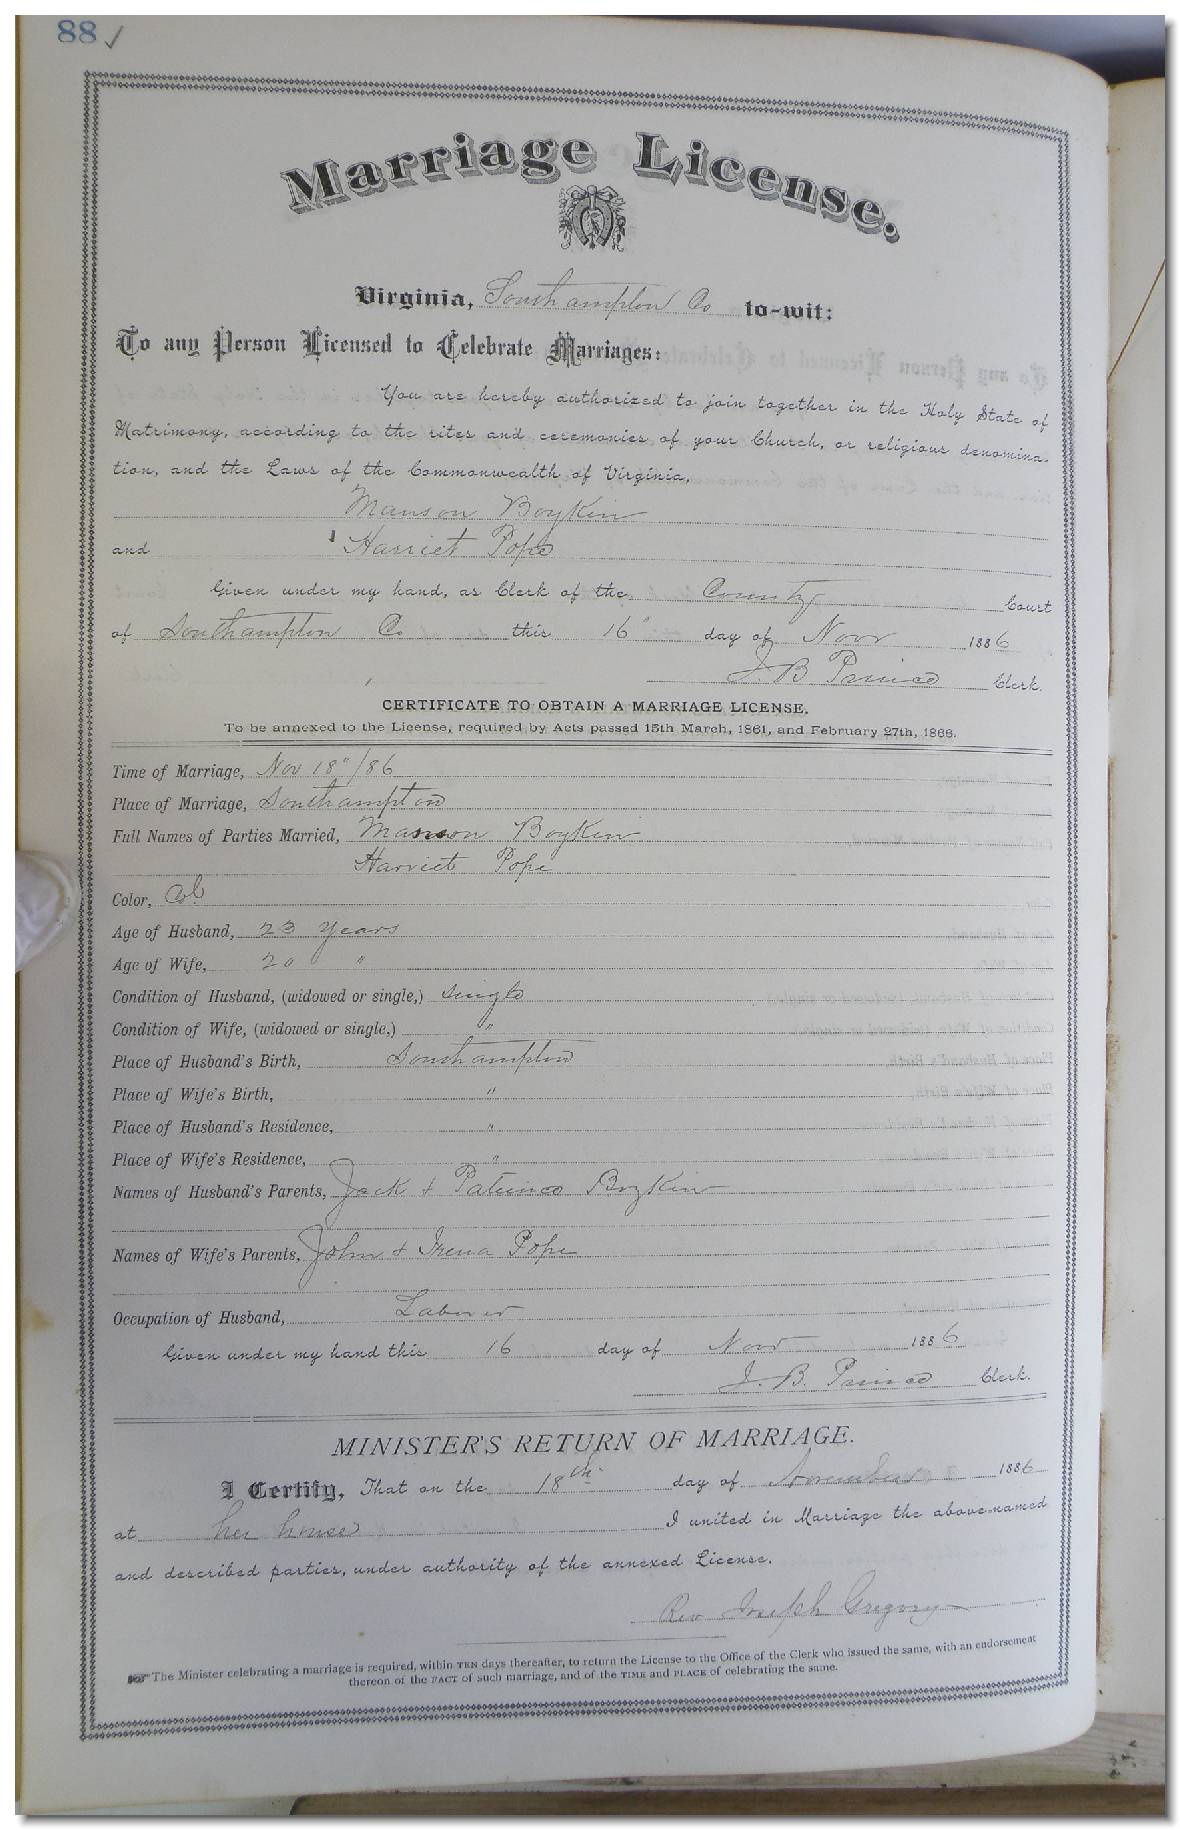 88 ✓
Marriage License.
Virginia, Southampton Co to-wit:
To any Person Licensed to Celebrate Marriages:
You are hereby authorized to join together in the Holy State of
Matrimony, according to the rites and ceremonies of your Church, or religious denomina-
tion, and the Laws of the Commonwealth of Virginia,
Manson Boykin
and Harriet Pope
Given under my hand, as Clerk of the County Court
of Southampton Co this 16" day of Novr 1886
J. B. Prince Clerk.
CERTIFICATE TO OBTAIN A MARRIAGE LICENSE.
To be annexed to the License, required by Acts passed 15th March, 1861, and February 27th, 1866.
Time of Marriage, Nov 18"/86
Place of Marriage, Southampton
Full Names of Parties Married, Manson Boykin
Harriet Pope
Color, Col
Age of Husband, 23 years
Age of Wife, 20 "
Condition of Husband, (widowed or single,) single
Condition of Wife, (widowed or single,) "
Place of Husband's Birth, Southampton
Place of Wife's Birth, "
Place of Husband's Residence, "
Place of Wife's Residence, "
Names of Husband's Parents, Jack + Boykin
Names of Wife's Parents, John + Irena Pope
Occupation of Husband, Laborer
Given under my hand this 16 day of Novr 1886
J. B. Prince Clerk.
MINISTER'S RETURN OF MARRIAGE.
I Certify, That on the 18th day of November 1886
at her house I united in Marriage the above-named
and described parties, under authority of the annexed License.
Rev Joseph Gregory
☞ The Minister celebrating a marriage is required, within TEN days thereafter, to return the License to the Office of the Clerk who issued the same, with an endorsement
thereon of the FACT of such marriage, and of the TIME and PLACE of celebrating the same.